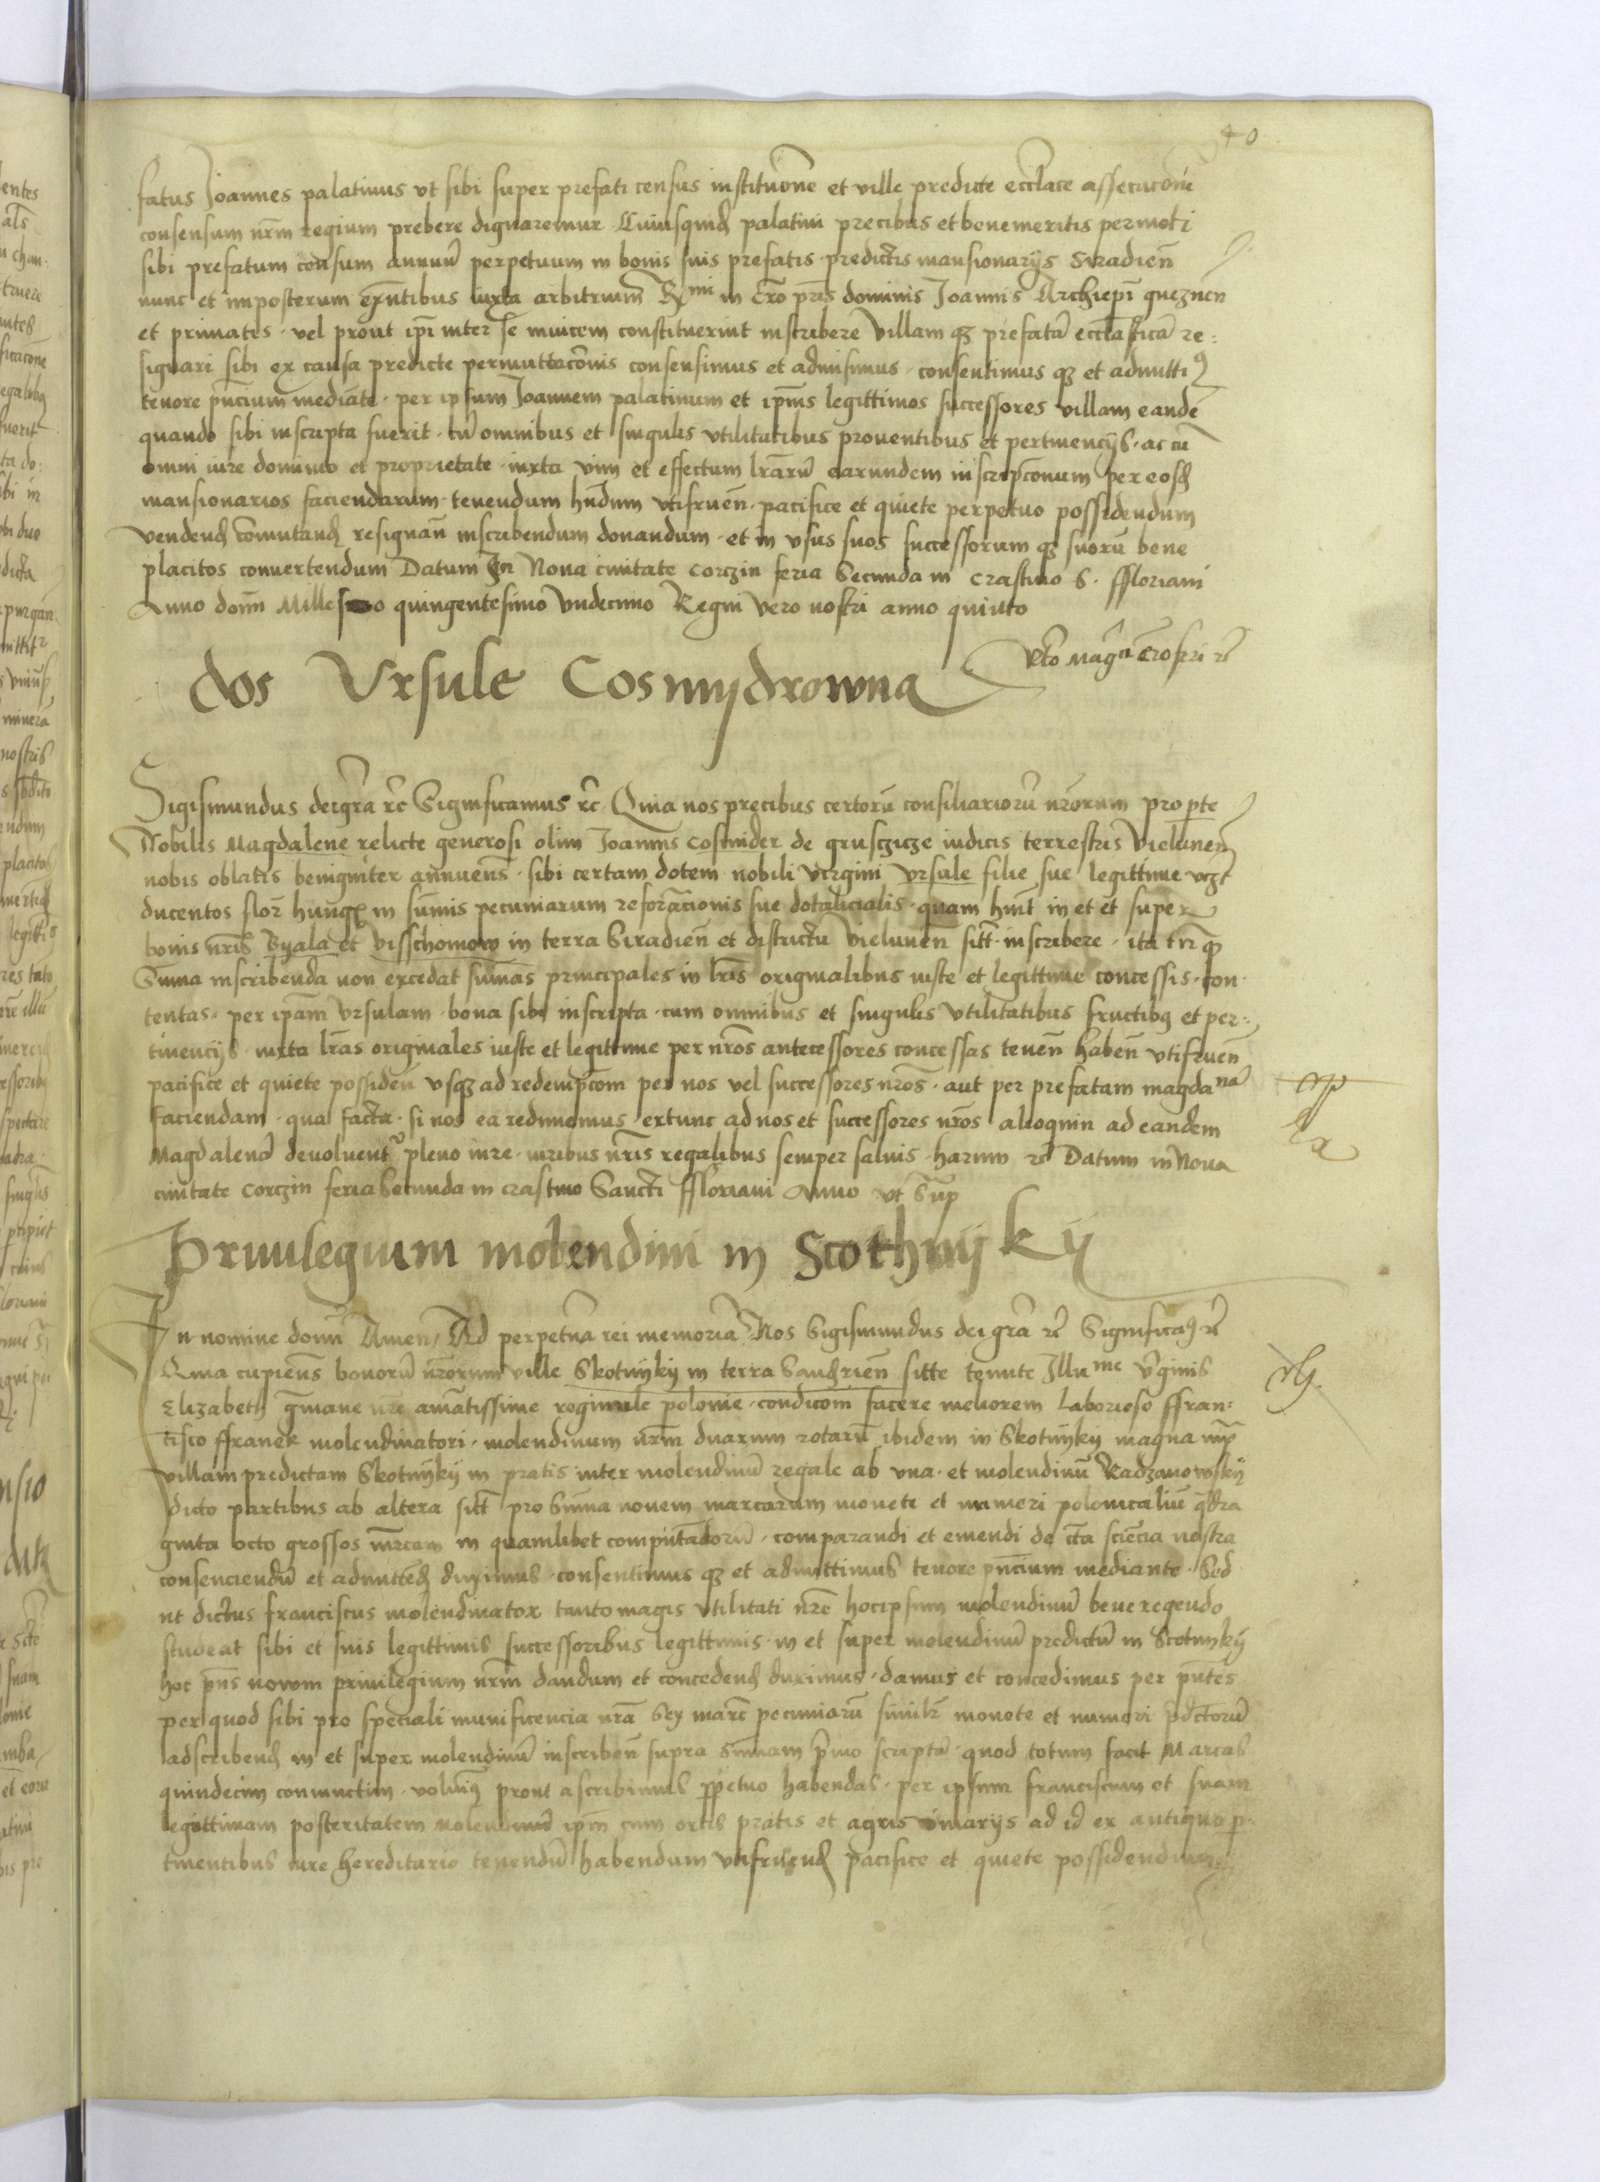 40
fatus Joannes palatinus vt sibi super prefati census institucione et ville predicte eccl̄iace assecucione
consensum nr̄m regium prebere dignaremur Cuiusquidē palatini precibus et benemeritis permoti
sibi prefatum censum annuū perpetuum in bonis suis prefatis predictis mansionarijs Siradien̄
nunc et imposterum exn̄tibus iuxta arbitrium Rmi in Cro pris domini Joannis Archiepī gneznen
et primatis · vel prout ipī inter se inuicem constituerint inscribere villam qȝ prefatā eccl̄iasticā re:
signari sibi ex causa predicte permuttacōnis consensimus et admisimus · consentimus qȝ et admitti9
tenore pn̄cium mediāte · per ipsum Joannem palatinum et ipīus legittimos successores villam eandē
quando sibi inscripta fuerit · cū omnibus et singulis vtilitatibus prouentibus et pertinencijs · ac cū
omni iure dominio et proprietate · iuxta vim et effectum lr̄arū earundem inscripcōnum per eosdē
mansionarios faciendarum · tenendum hn̄dum vtifruen̄ · pacifice et quiete perpetuo possidendum
vendendū comutandū resignan̄ inscribendum donandum · et in vsus suos successorum qȝ suorū bene
placitos conuertendum Datum In Noua ciuitate Corczin feria Secunda in crastino S. Ffloriani
Anno domī Millesimo quingentesimo vndecimo Regni vero nostri anno quinto
dos Vrsule Cosmydrowna
Sigismundus dei gra rc̄ Significamus rc̄ · Quia nos precibus certorū consiliariorū nr̄orum pro pte
Nobilis Magdalene relicte generosi olim Joannis Cosmider de gruszcicze iudicis terrestris Vielunen̄
nobis oblatis benigniter annuens · sibi certam dotem nobili virgini vrsule filie sue legittime
ducentos flor̄ hunḡ in sūmis pecuniarum reformacionis sue dotalicialis · quam hn̄t in et et super
bonis nr̄is Byala et visschomow in terra Siradien̄ et districtu Vielunen̄ sitt̄ · inscribere · ita tn̄ qȝ
Suma inscribenda non excedat sumas principales in lr̄is originalibus iuste et legittime concessis · con
tentas · per ipam vrsulam · bona sibi inscripta · cum omnibus et singulis vtilitatibus fructibȝ et per:
tinencijs · iuxta lr̄as originales iuste et legittime per nr̄os antecessores concessas tenen̄ haben̄ vtifruen̄
pacifice et quiete possiden̄ vsqȝ ad redempcōm per nos vel successores nr̄os · aut per prefatam magdanā
faciendam · qua facta · si nos ea redimemus extunc ad nos et successores nr̄os alioquin ad eandem
Magdalenā deuoluent̄ pleno iure · iuribus nr̄is regalibus semper saluis · harum rc̄ Datum in Noua
ciuitate Corczin feria Secunda in crastino Sancti Ffloriani Anno vt Sup̄
Priuilegium molendini in Scothnijkij
In nomine domī Amen, Ad perpetuā rei memoriā Nos Sigismundus dei grā rc̄ Significam9 rc̄
Quia cupiens bonorū nr̄orum ville Skotnijkij in terra Sandrien̄ sitte tenute Illume vginis
Elizabeth gmane nr̄e amātissime reginule polonie · condicōm facere meliorem Laborioso ffran:
cisco ffranek molendinatori · molendinum nr̄m duarum rotarū ibidem in Skotnyky magna
villam predictam Skotnijkij in pratis inter molendinū regale ab vna · et molendinū Radzanowskij
dicto partibus ab altera sitt̄ pro Suma nouem marcarum monete et numeri polonicaliū qdra
ginta octo grossos mr̄cam in quamlibet computādorū · comparandi et emendi de cta sciēcia nostra
consenciendū et admittendū duximus · consentimus qȝ et admittimus tenore pn̄cium mediante · Sed
ut dictus franciscus molendinator tanto magis vtilitati nr̄e hoc ipsum molendinū bene regendo
studeat sibi et suis legittimis successoribus legittimis · in et super molendinū predictū in Scotnykij
hoc pn̄s nouum priuilegium nr̄m dandum et concedendū duximus · damus et concedimus per pn̄tes
per quod sibi pro speciali munificencia nrā Sex marc̄ pecuniarū similr̄ monete et numeri pdctorū
adscribendū in et super molendinū inscriben̄ supra Sumam pmo scriptā · quod totum facit Marcas
quindecim coniunctim · volum9 prout ascribimus ppetuo habendas · per ipsum franciscum et suam
legittimam posteritatem molendinū ipm̄ cum ortis pratis et agris ad id ex antiquo p
tinentibus iure hereditario tenendū habendum vtifruendū pacifice et quiete possidendum